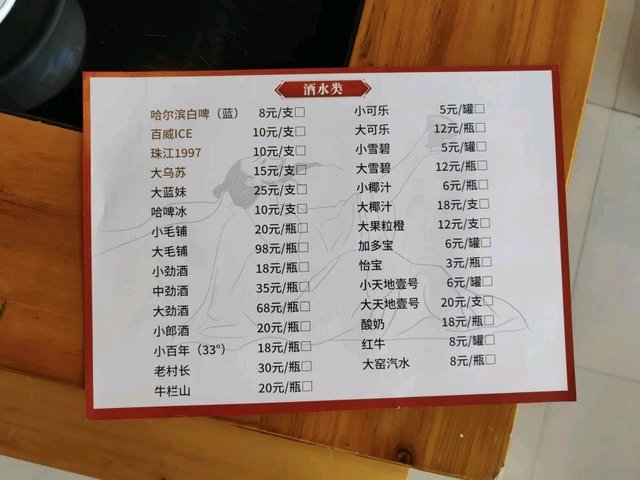 酒水类
哈尔滨白啤（蓝） 8元/支□
百威ICE 10元/支□
珠江1997 10元/支□
大乌苏 15元/支□
大蓝妹 25元/支□
哈啤冰 10元/支□
小毛铺 20元/瓶□
大毛铺 98元/瓶□
小劲酒 18元/瓶□
中劲酒 35元/瓶□
大劲酒 68元/瓶□
小郎酒 20元/瓶□
小百年（33°） 18元/瓶□
老村长 30元/瓶□
牛栏山 20元/瓶□
小可乐 5元/罐□
大可乐 12元/瓶□
小雪碧 5元/罐□
大雪碧 12元/瓶□
小椰汁 6元/瓶□
大椰汁 18元/支□
大果粒橙 12元/支□
加多宝 6元/罐□
怡宝 3元/瓶□
小天地壹号 6元/罐□
大天地壹号 20元/支□
酸奶 18元/瓶□
红牛 8元/罐□
大窑汽水 8元/瓶□